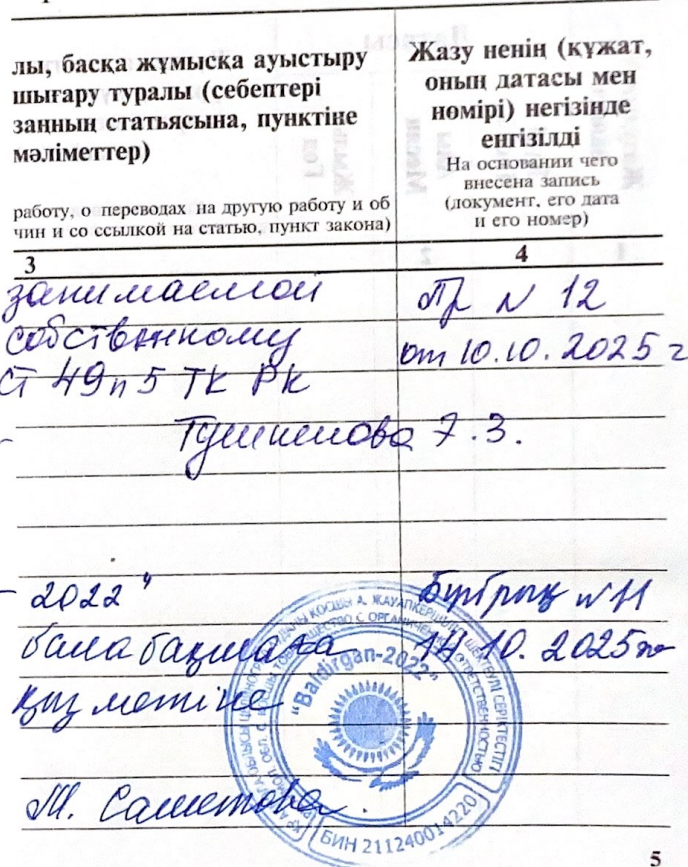 лы, басқа жұмысқа ауыстыру
шығару туралы (себептері
заңның статьясына, пунктіне
мәліметтер)
работу, о переводах на другую работу и об
чин и со ссылкой на статью, пункт закона)
Жазу ненің (құжат,
оның датасы мен
нөмірі) негізінде
енгізілді
На основании чего
внесена запись
(документ, его дата
и его номер)
3
4
занимаемой
Пр N 12
собственному
от 10.10.2025 г
ст 49 п 5 ТК РК
Э.З.
- 2022"
Бұйрық №11
балабақшаға
14.10.2025ж
қызметіне
М. Саметова
"Baldirgan-2022"
БИН 211240014220
5